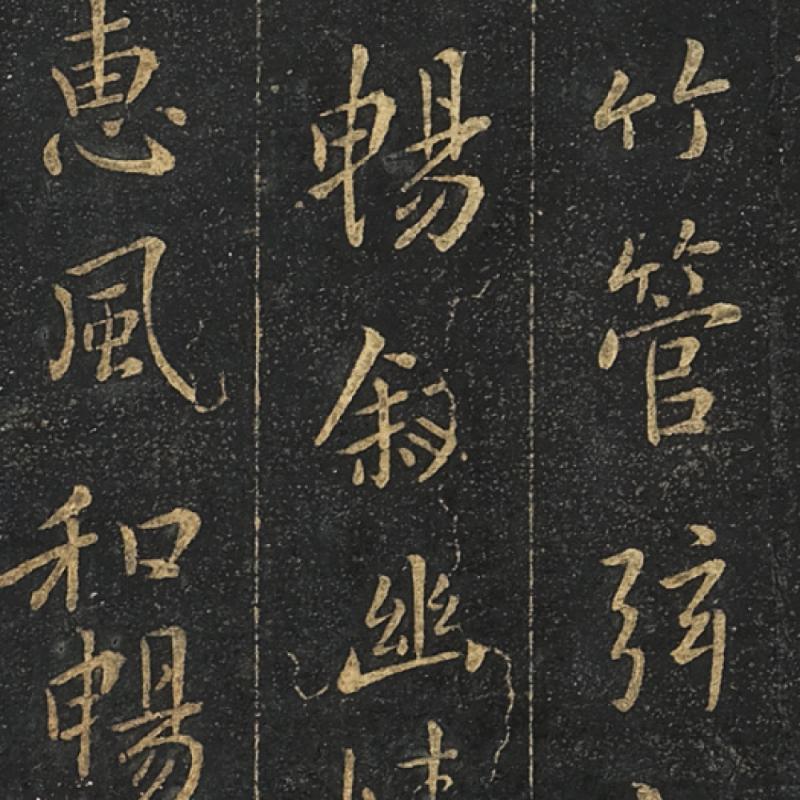 竹管弦
暢敘幽情
惠風和暢